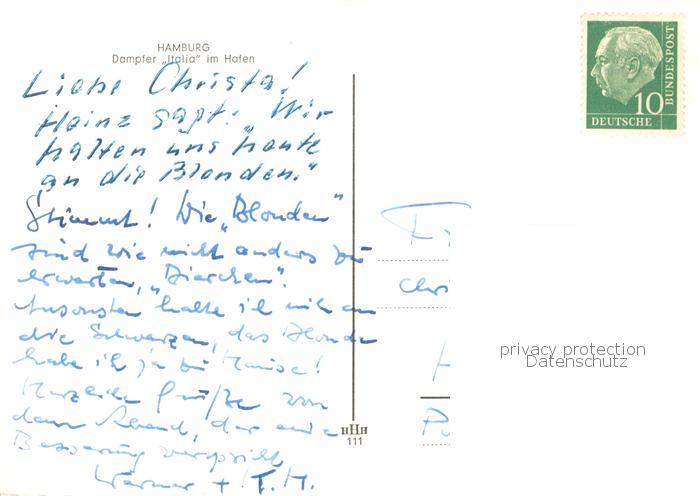 HAMBURG
Dampfer „Italia" im Hafen
Liebe Christa!
Heinz sagt: „Wir
halten uns heute
an die Blonden."
Stimmt! Die „Blonden"
sind wie nicht anders zu
erwarten, „Bierchen".
Ansonsten halte ich mich an
die Schwarzen, das Blonde
habe ich ja zu Hause!
Herzliche Grüße von
dem Abend, der eine
Besserung verspricht
Werner + H.M.
HHH
111
10
DEUTSCHE
BUNDESPOST
Fr
Chri
H
Po
privacy protection
Datenschutz